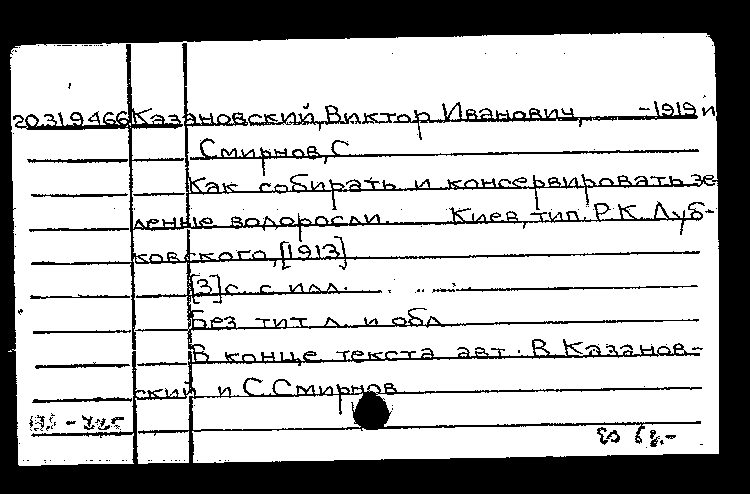 20.319466 Казановский, Виктор Иванович, -1919 и
Смирнов, С
Как собирать и консервировать зе
леные водоросли. Киев, тип. Р.К. Луб-
ковского, [1913]
[3] с. с илл.
Без тит. л. и обл
В конце текста авт.: В. Казанов-
ский и С. Смирнов